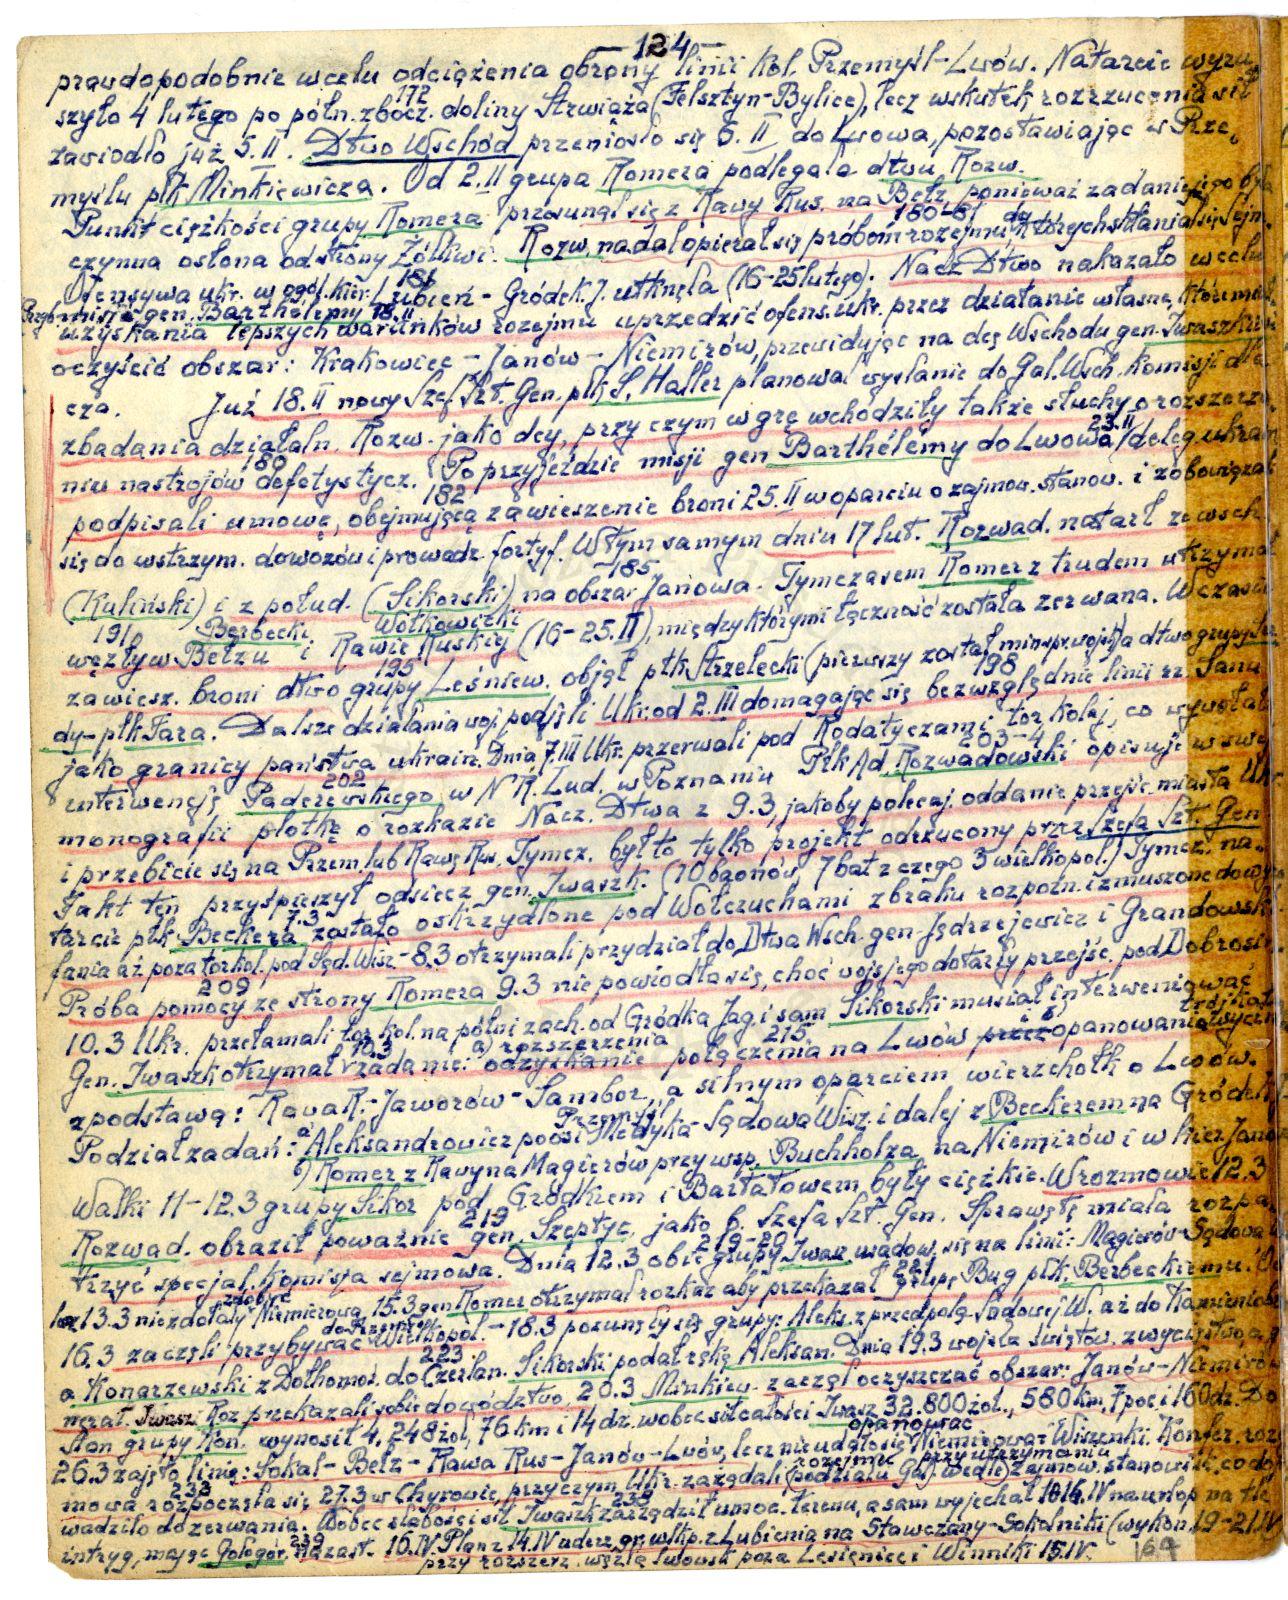 — 124 —
prawdopodobnie w celu odciążenia obrony linii kol. Przemyśl-Lwów. Natarcie wyru
172
szyło 4 lutego po półn. zbocz. doliny Strwiąża (Felsztyn-Bylice), lecz wskutek rozrzucenia sił
zawiodło już 5.II. Dtwo Wschód przeniosło się 6.II do Lwowa, pozostawiając w Prze
myślu płk Minkiewicza. Od 2.II grupa Romera podlegała dtwu Rozw.
Punkt ciężkości grupy Romera przesunął się z Rawy Rus. na Bełz, ponieważ zadaniem jego była
180-81
czynna osłona od strony Żółkwi. Rozw. nadal opierał się próbom rozejmu, do których skłaniał się Sejm.
181
Ofensywa ukr. w ogól. kier. Lubień - Gródek J. utknęła (16-25 lutego). Nacz Dtwo nakazało w celu
Przyb. misja gen. Barthélemy 18.II
uzyskania lepszych warunków rozejmu uprzedzić ofens. ukr. przez działanie własne, które miało
oczyścić obszar: Krakowiec - Janów - Niemirów, przewidując na dcę Wschodu gen. Iwaszkie
cza. Już 18.II nowy Szef Szt. Gen. płk S. Haller planował wysłanie do Gal. Wsch. Komisji dla
zbadania działaln. Rozw. jako dcy, przy czym w grę wchodziły także słuchy o rozszerza
180 23.II
niu nastrojów defetystycz. Po przyjeździe misji gen Barthélémy do Lwowa (deleg. ukraiń
182
podpisali umowę, obejmującą zawieszenie broni 25.II w oparciu o zajmow. stanow. i zobowiązali
się do wstrzym. dowozów i prowadz. fortyf. W tym samym dniu 17 lut. Rozwad. natarł ze wsch
185
(Kuliński) i z połud. (Sikorski) na obszar Janowa. Tymczasem Romer z trudem utrzymał
191 Berbecki Wołkowicki
węzły w Bełzu i Rawie Ruskiej (16-25.II), między którymi łączność została zerwana. W czasie
195
zawiesz. broni dtwo grupy Leśniew. objął płk Strzelecki (pierwszy został min. spr. wojsk) a dtwo grupy
198
dy - płk Fara. Dalsze działania woj. podjęli Ukr. od 2.III domagając się bezwzględnie linii rz. Sanu
jako granicy państwa ukrain. Dnia 7.III Ukr. przerwali pod Rodatyczami tor kolej, co wywołało
202 203-4
interwencję Paderewskiego w N R. Lud. w Poznaniu Płk Ad. Rozwadowski opisuje w swej
monografii plotkę o rozkazie Nacz. Dtwa z 9.3, jakoby polecaj. oddanie przejśc. miasta Ukr
i przebicie się na Przem. lub Rawę Rus. Tymcz. był to tylko projekt odrzucony przez Szefa Szt. Gen
Fakt ten przyśpieszył odsiecz gen. Iwaszk. (10 baonów, 7 bat z czego 3 wielkopol.) Tymcz. na-
7.3
tarcie płk Beckera zostało oskrzydlone pod Wołczuchami z braku rozpozn. i zmuszone do wyco
fania aż poza tor kol. pod Sąd. Wisz - 8.3 otrzymali przydział do Dtwa Wsch. gen. Jędrzejewicz i Grandowski
209
Próba pomocy ze strony Romera 9.3 nie powiodła się, choć wojs. jego dotarły przejśc. pod Dobrosin
10.3 Ukr. przełamali tor kol. na półn. zach. od Gródka Jag. i sam Sikorski musiał interweniować
10.3 a) rozszerzenia 215 b) trójkąta
Gen. Iwaszk otrzymał zadanie: odzyskanie połączenia na Lwów przez opanowania
z podstawą: Rawa R.- Jaworów - Sambor, a silnym oparciem wierzchołk o Lwów.
Przemyśl
Podział zadań: a) Aleksandrowicz po osi Medyka - Sądowa Wisz. i dalej z Beckerem na Gródek
b) Romer z Rawy na Magierów przy wsp. Buchholza na Niemirów i w kier. Janów
Walki 11-12.3 grupy Sikor pod Gródkiem i Bartatowem były ciężkie. W rozmowie 12.3
219
Rozwad. obraził poważnie gen. Szeptyc, jako b. Szefa Szt. Gen. Sprawę tę miała rozpa
219-20
trzyć specjal. Komisja sejmowa. Dnia 12.3 obie grupy Iwasz usadow. się na linii: Magierów-Sądowa
zdobyć 221
lecz 13.3 nie zdołały Niemirowa. 15.3 gen Romer otrzymał rozkaz aby przekazał grupę Bug płk. Berbeckiemu.
do Przemyśla
16.3 zaczęli przybywać Wielkopol. - 18.3 posunęły się grupy: Aleks. z przedpola Sądowej W. aż do Kamieniobr
223
a Konarzewski z Dołhomoś. do Czerlan. Sikorski podał rękę Aleksan. Dnia 19.3 wojska świętow. zwycięstwo, a
generał. Iwasz. i Roz przekazali sobie dowództwo. 20.3 Minkiew. zaczął oczyszczać obszar: Janów-Niemirów
Stan grupy Kon. wynosił 4.248 żoł, 76 km i 14 dz. wobec sił całości Iwasz 32.800 żoł., 580 km, 7 poc. i 160 dz. Do
opanować
26.3 zajęto linię: Sokal - Bełz - Rawa Rus - Janów - Lwów, lecz nie udało się Niemirowa - Wiszenki. Konfer. roz
233 rozejmu przy utrzymaniu
mowa rozpoczęła się 27.3 w Chyrowie, przyczym Ukr. zażądali (podziału Gal) zajmow. stanowisk, co dopro
233
wadziło do zerwania. Wobec słabości sił Iwaszk zarządził umoc. terenu, a sam wyjechał 10.IV na urlop na tle
239
intryg, mając Gologór. na zast. 10.IV. Plan z 14.IV uderz. gr. wlkp. z Lubienia na Stawczany-Sokolniki (wykon. 19-21.IV
przy rozszerz. węzła lwowsk poza Lesienice i Winniki 15.IV.
164